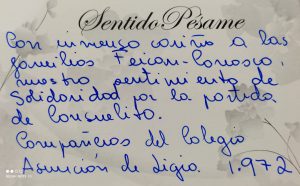 Sentido Pésame
Con inmenso cariño a las
familias Feican-Conosco,
nuestro sentimiento de
solidaridad por la partida
de Consuelito.
Compañeros del Colegio
Asunción de Ligia 1.972